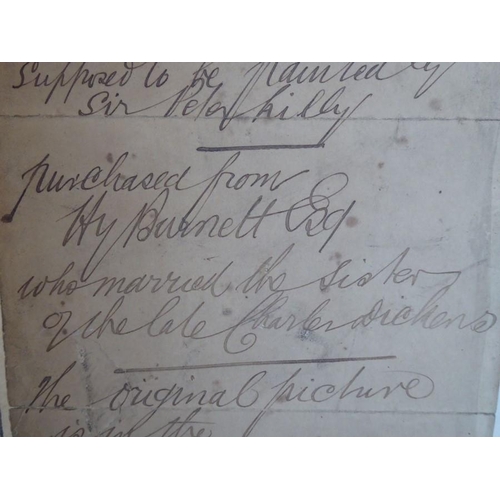 Supposed to be painted by
Sir Peter Lilly
purchased from
Hy Burnett Esq
who married the sister
of the late Charles Dickens
The original picture
is in the